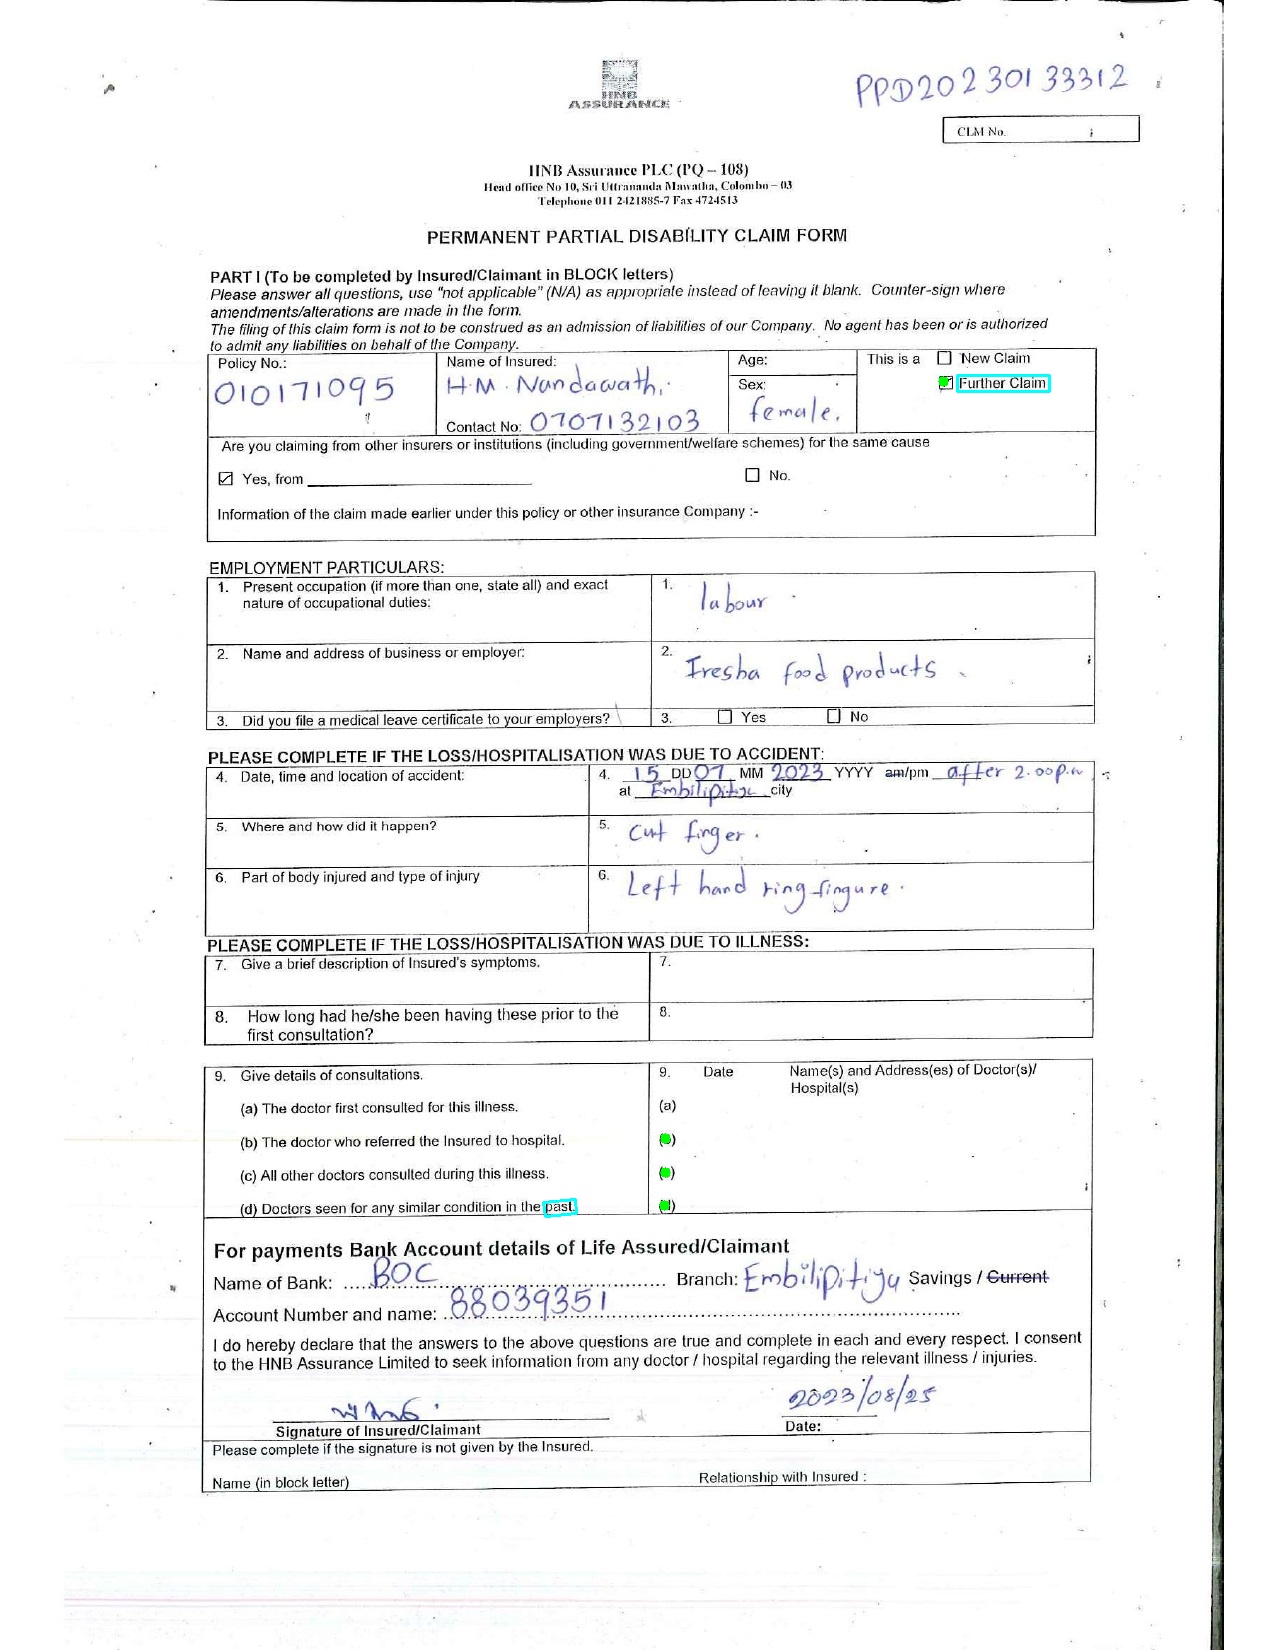 HNB
ASSURANCE
PPD20230133312
CLM No.
HNB Assurance PLC (PQ – 108)
Head office No 10, Sri Uttrananda Mawatha, Colombo – 03
Telephone 011 2421885-7 Fax 4724513
PERMANENT PARTIAL DISABILITY CLAIM FORM
PART I (To be completed by Insured/Claimant in BLOCK letters)
Please answer all questions, use "not applicable" (N/A) as appropriate instead of leaving it blank. Counter-sign where
amendments/alterations are made in the form.
The filing of this claim form is not to be construed as an admission of liabilities of our Company. No agent has been or is authorized
to admit any liabilities on behalf of the Company.
Policy No.: Name of Insured: Age: This is a ☐ New Claim
010171095 H.M. Nandawath. Sex: ☑ Further Claim
Contact No: 0707132103 female.
Are you claiming from other insurers or institutions (including government/welfare schemes) for the same cause
☑ Yes, from ☐ No.
Information of the claim made earlier under this policy or other insurance Company :-
EMPLOYMENT PARTICULARS:
1. Present occupation (if more than one, state all) and exact 1. labour
nature of occupational duties:
2. Name and address of business or employer: 2. Iresha food products
3. Did you file a medical leave certificate to your employers? 3. ☐ Yes ☐ No
PLEASE COMPLETE IF THE LOSS/HOSPITALISATION WAS DUE TO ACCIDENT:
4. Date, time and location of accident: 4. 15 DD 07 MM 2023 YYYY am/pm after 2.00p.m
at Embilipitiya city
5. Where and how did it happen? 5. Cut finger.
6. Part of body injured and type of injury 6. Left hand ring fingure.
PLEASE COMPLETE IF THE LOSS/HOSPITALISATION WAS DUE TO ILLNESS:
7. Give a brief description of Insured's symptoms. 7.
8. How long had he/she been having these prior to the 8.
first consultation?
9. Give details of consultations. 9. Date Name(s) and Address(es) of Doctor(s)/
Hospital(s)
(a) The doctor first consulted for this illness. (a)
(b) The doctor who referred the Insured to hospital. (b)
(c) All other doctors consulted during this illness. (c)
(d) Doctors seen for any similar condition in the past. (d)
For payments Bank Account details of Life Assured/Claimant
Name of Bank: BOC Branch: Embilipitiya Savings / Current
Account Number and name: 88039351
I do hereby declare that the answers to the above questions are true and complete in each and every respect. I consent
to the HNB Assurance Limited to seek information from any doctor / hospital regarding the relevant illness / injuries.
2023/08/25
Signature of Insured/Claimant Date:
Please complete if the signature is not given by the Insured.
Name (in block letter) Relationship with Insured :